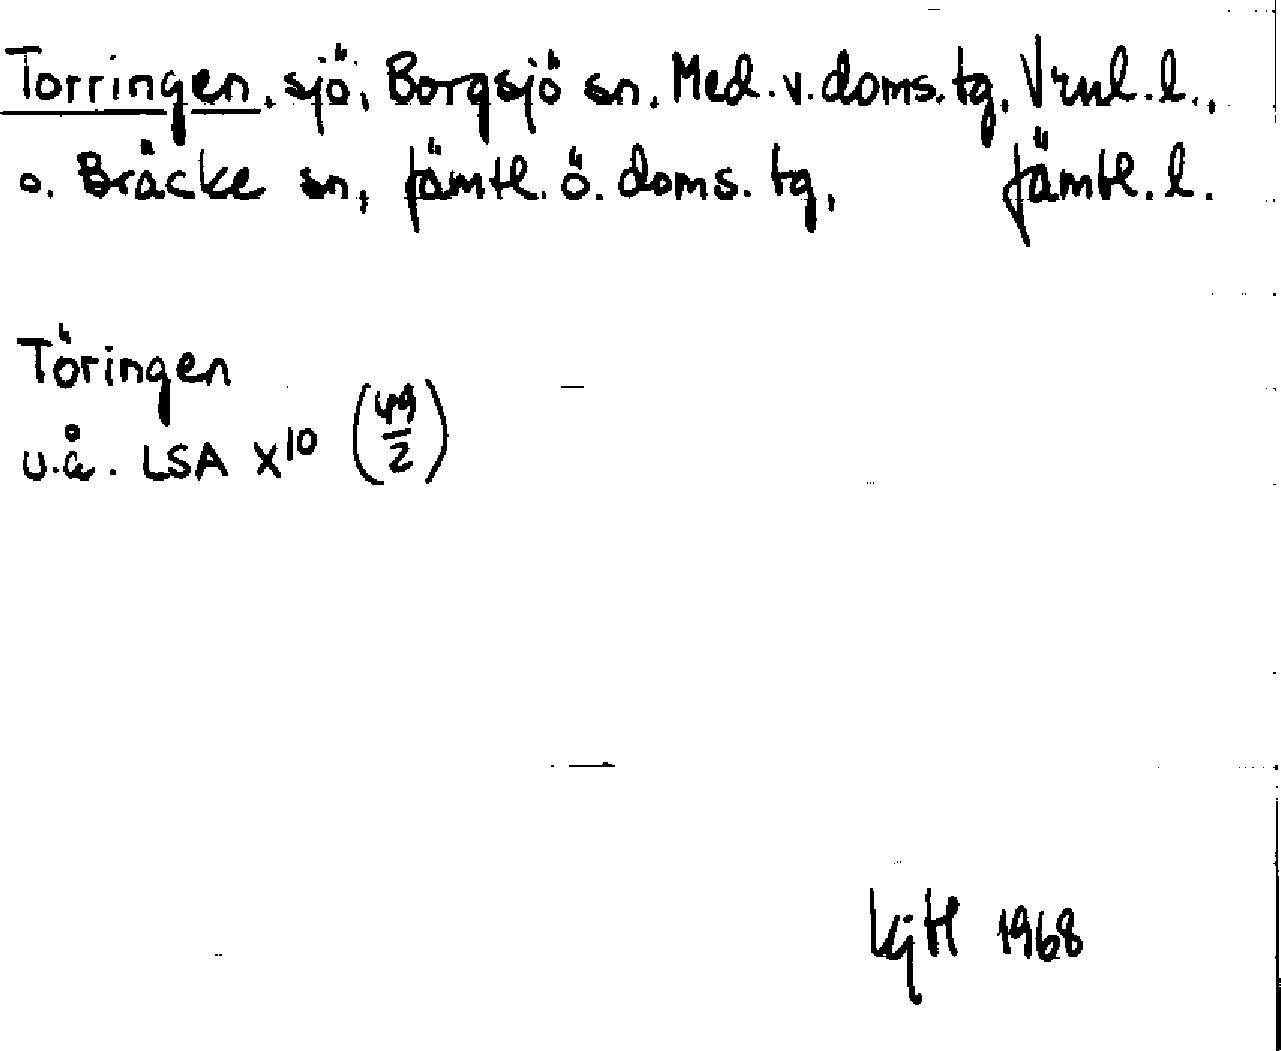 Torringen, sjö, Borgsjö sn, Med. v. doms. tg, Vrnl. l.,
o. Bräcke sn, Jämtl. ö. doms. tg, Jämtl. l.
Töringen
u.å. LSA X10 (49/2)
1968